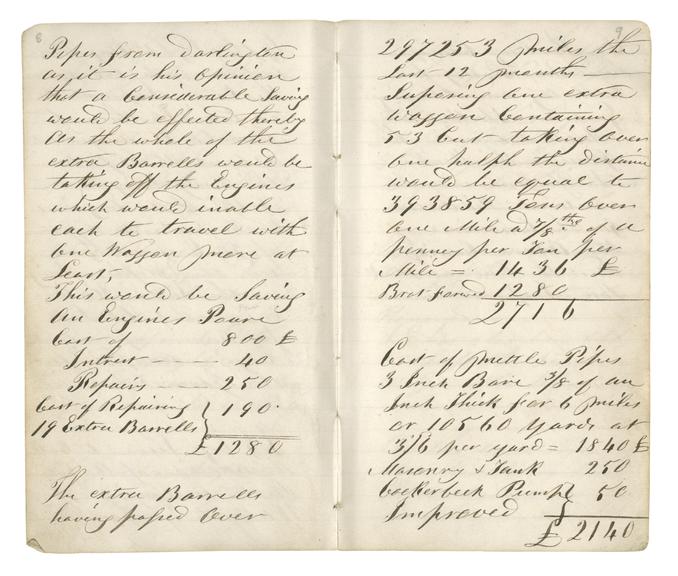 8
Pipes from Darlington
as it is his Opinion
that a Considerable Saving
would be effected thereby
as the whole of the
extra Barrells would be
taking off the Engines
which would inable
each to travel with
one Waggon more at
Least,
This would be Saving
an Engines Poure
Cost of 800 £
Intrest — — — 40
Repairs — — — 250
Cost of Repairing
19 Extra Barrells } 190
£1280
The extra Barrells
having passed Over
9
297253 miles the
Last 12 months —
Suposing one extra
Waggon Containing
53 Cwt taking over
one halph the distance
would be equal to
393859 Tons Over
one Mile a 7/8ths of a
penney per Ton per
Mile = 1436 £
Brot forward 1280
2716
Cost of Mettle Pipes
3 Inch Bare 3/8 of an
Inch Thick for 6 miles
or 10560 Yards at
3/6 per yard = 1840 £
Masonry & Tank 250
Cockerbeck Pump
Improved } 50
£2140